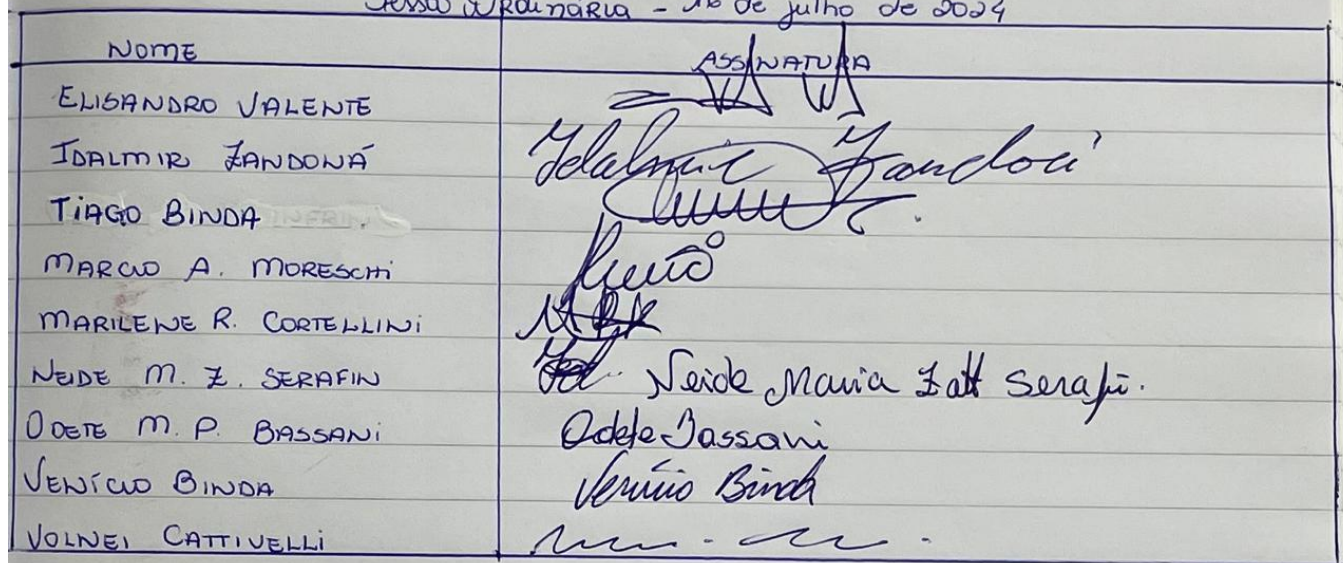 Sessão Ordinária - 16 de julho de 2024
NOME ASSINATURA
ELISANDRO VALENTE
IDALMIR ZANDONÁ Idalmir Zandoná
TIAGO BINDA
MARCIO A. MORESCHI
MARILENE R. CORTELLINI MRK
NEIDE M. Z. SERAFIN Neide Maria Zatt Serafi.
ODETE M. P. BASSANI Odete Bassani
VENÍCIO BINDA Venício Binda
VOLNEI CATTIVELLI